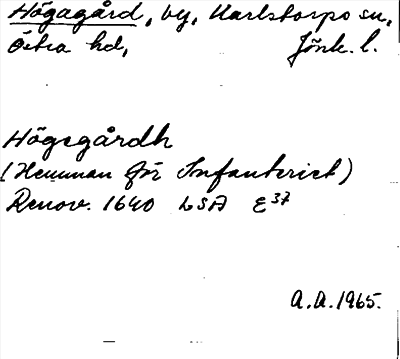 Högagård, by, Karlstorps sn,
Östra hd, Jönk. l.
Högegårdh
(Hemman för Infanteriet)
Renov. 1640 LSA E37
A.A. 1965.